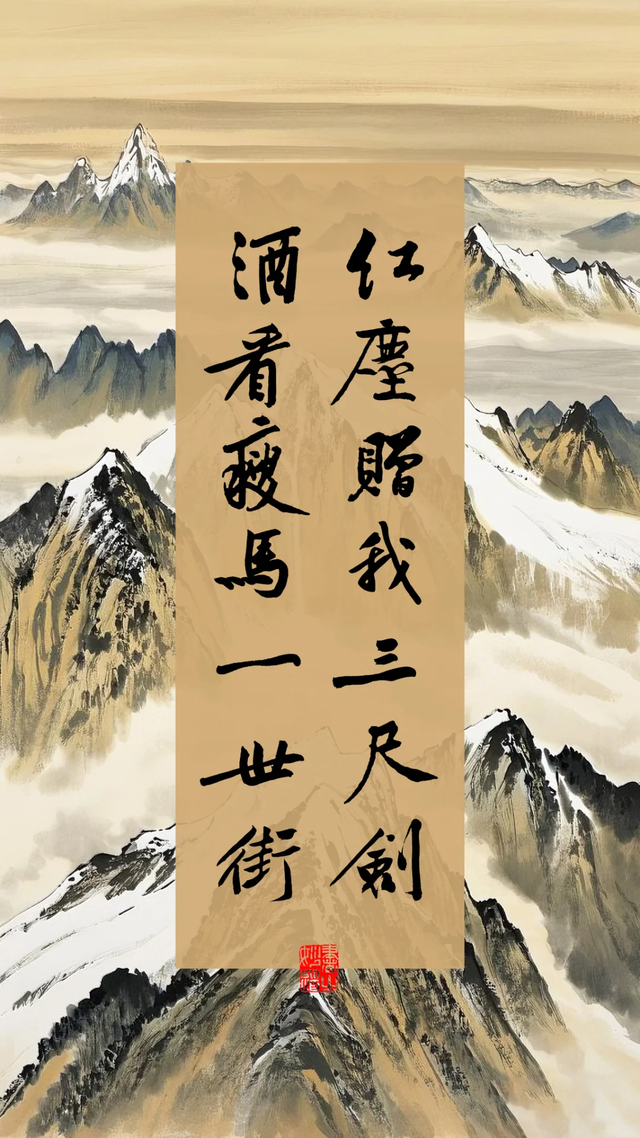 红塵贈我三尺劍
酒看瘦馬一世街